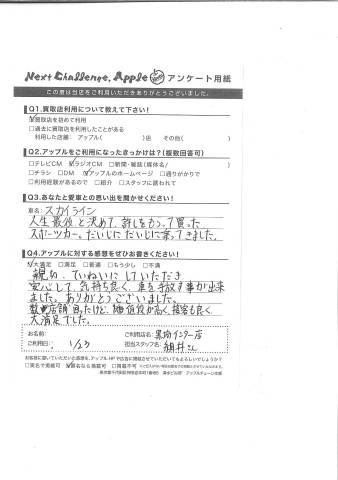 Next Challenge. Apple アンケート用紙
この度は当店をご利用いただきありがとうございました。
Q1.買取店利用について教えて下さい!
買取店を初めて利用
□過去に買取店を利用したことがある
利用した店舗: アップル( )店 その他( )
Q2.アップルをご利用になったきっかけは?(複数回答可)
□テレビCM ラジオCM □新聞・雑誌(媒体名/ )
□チラシ □DM アップルのホームページ □通りがかりで
□利用経験があるので □紹介 □スタッフに誘われて
Q3.あなたと愛車との思い出を聞かせください!
車名: スカイライン
人生最後と決めて、許しをもらって買った
スポーツカー。だいじにだいじに乗ってきました。
Q4.アップルに対する感想をぜひお書きください!
大満足 □満足 □普通 □もう少し □不満
親切、ていねいにしていただき
安心して、気持ち良く、車を手放す事が出来
ました。ありがとうございました。
数店舗回ったけど、価値が高く、接客も良く
大満足でした。
お名前:
ご利用日: 1/23
ご利用店名: インター店
担当スタッフ名: 細井さん
お客様に書いていただいた感想を、アップルHPや店舗に掲載させていただいてもよろしいでしょうか?
□実名で掲載可 匿名なら掲載可 □掲載不可